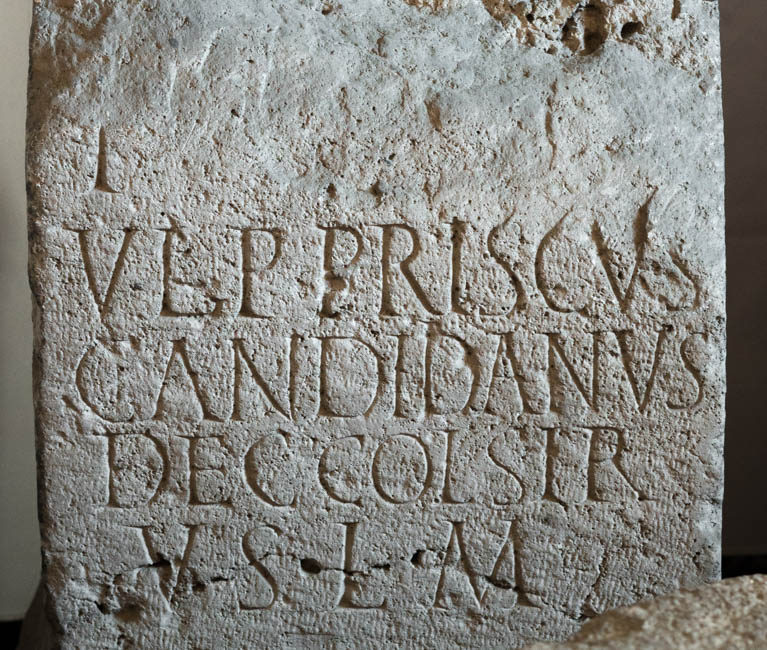 VLP PRISCVS
CANDIDANVS
DEC COL SIR
V S L M